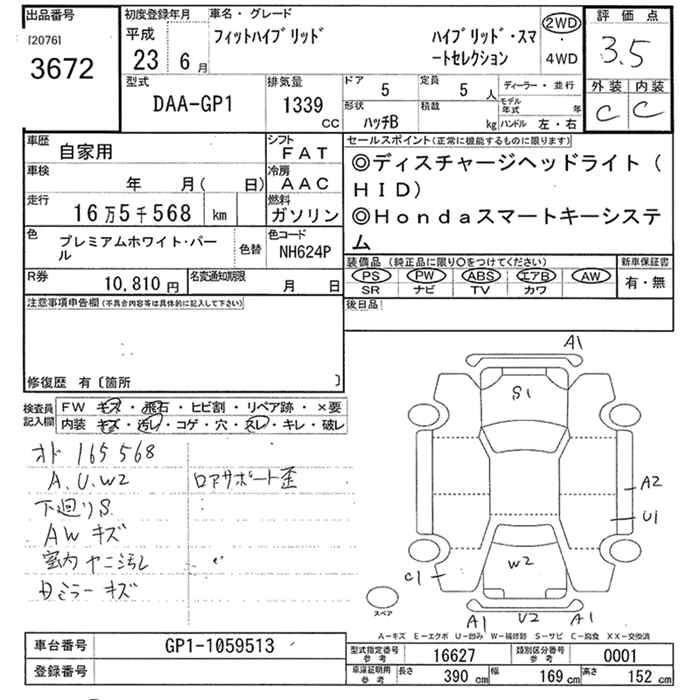 出品番号
[2076]
3672
初度登録年月
平成
23 6 月
車名・グレード
フィットハイブリッド
ハイブリッド・スマ
ートセレクション
2WD
・
4WD
評価点
3.5
外装 内装
C C
型式
DAA-GP1
排気量
1339
CC
ドア
5
定員
5 人
形状
ハッチB
積載
kg
ディーラー・並行
モデル年式 年
ハンドル 左・右
車歴
自家用
シフト
FAT
車検
年 月( 日)
冷房
AAC
走行
16万5千568 km
燃料
ガソリン
色
プレミアムホワイト・パー
ル
色替
色コード
NH624P
R券
10,810 円
名変通知期限
月 日
セールスポイント(正常に機能するものに限ります)
◎ディスチャージヘッドライト(
HID)
◎Hondaスマートキーシステ
ム
装備品(純正品に限り〇をつけてください)
PS PW ABS エアB AW
SR ナビ TV カワ
新車保証書
有・無
注意事項申告欄(不具合内容等は具体的に記入して下さい)
後日品
修復歴 有〔箇所 〕
検査員
記入欄
FW キズ・飛石・ヒビ割・リペア跡・×要
内装 キズ・汚レ・コゲ・穴・スレ・キレ・破レ
オド 165568
A.U.W2
ロアサポート歪
下廻りS
AW キズ
室内 ヤニ汚レ
ミラー キズ
A1
S1
A2
U1
W2
C1
A1 U2 A1
スペア
A-キズ E-エクボ U-凹み W-補修跡 S-サビ C-腐食 XX-交換済
車台番号
GP1-1059513
登録番号
型式指定番号
参考
16627
類別区分番号
参考
0001
車庫証明用
参考
長さ 390 cm
幅 169 cm
高さ 152 cm